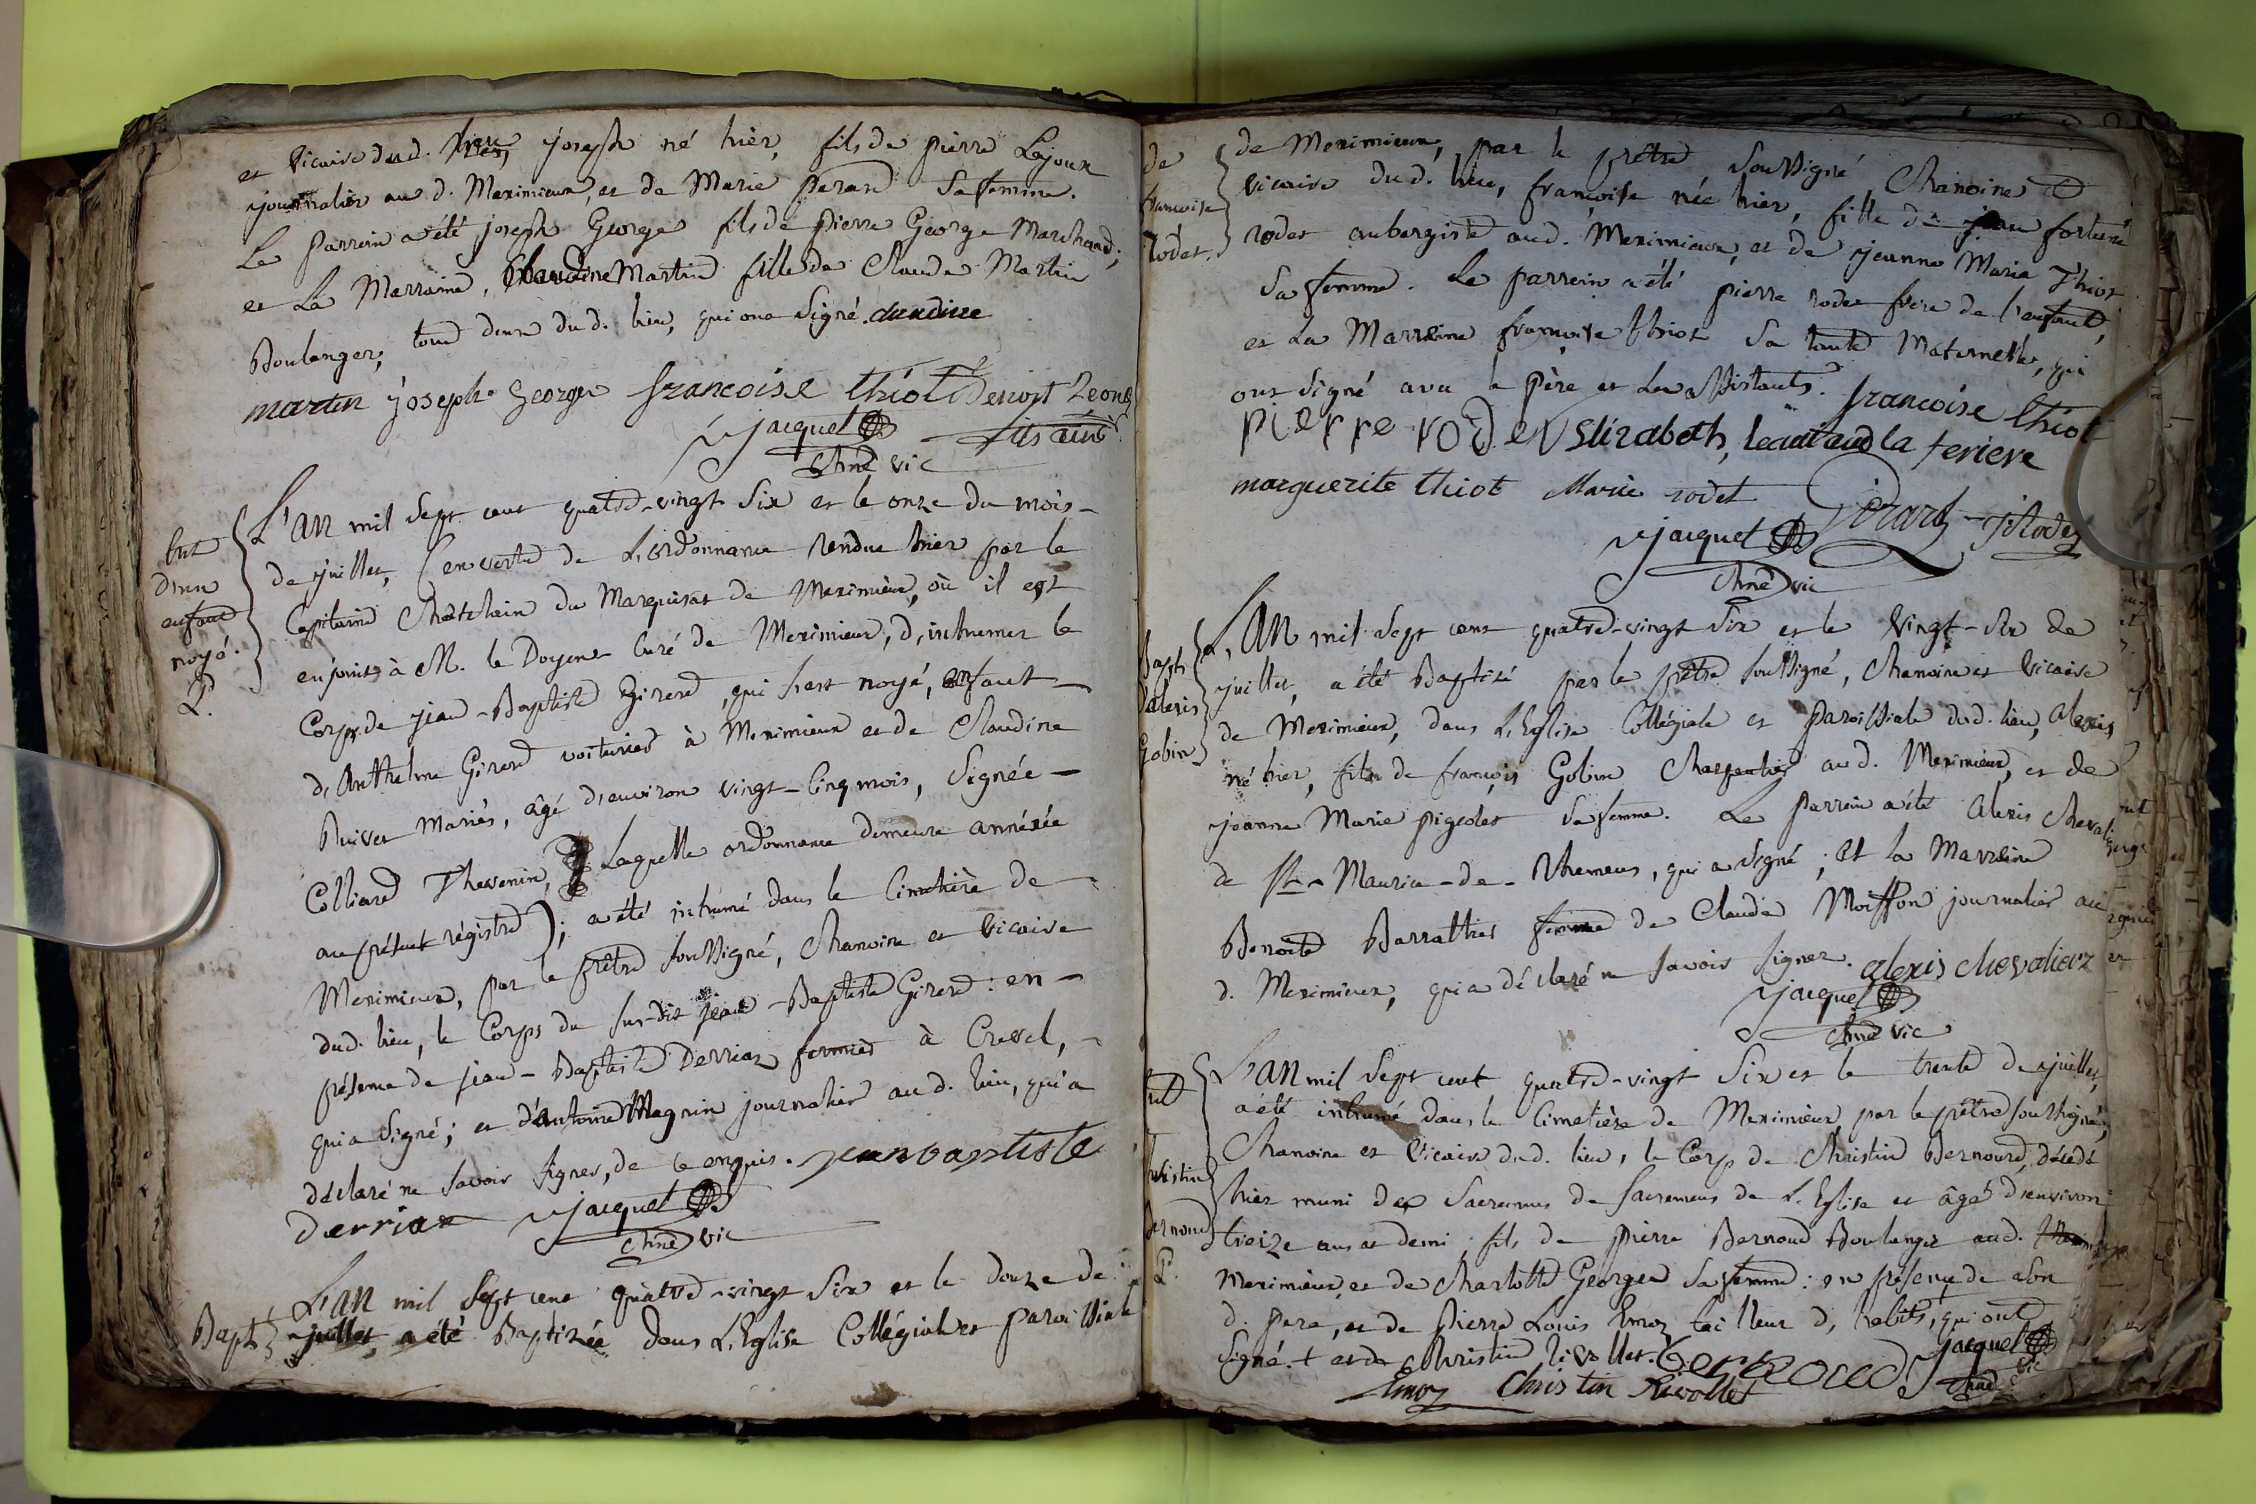 et vicaire dud. lieu, joseph né hier, fils de pierre Lajoux
journalier aud. Meximieux, et de Marie peran Sa femme.
Le parrein a été joseph George fils de pierre George Marchand;
et La Marraine, Claudine Martin fille de Claude Martin
Boulanger, tous deux du d. lieu, qui ont Signé. claudine
martin joseph George francoise thiot Benoit Leons
jacquet fils ainé
chne vic
Ent
d'un
enfant
noyé.
L'an mil Sept cent quatre-vingt Six et le onze du mois
de juillet, (en vertu de L'ordonnance rendue hier par le
Capitaine Chatelain du Marquisat de Meximieux, où il est
enjoint à M. le Doyen Curé de Meximieux, d'inhumer le
Corps de jean-Baptiste Girerd, qui s'est noyé, enfant
d'Anthelme Girerd voiturier à Meximieux et de Claudine
Buivet mariés, âgé d'environ vingt-Cinq mois, Signée
Colliard Thevenin, Laquelle ordonnance demeure annéxée
au présent régistre); a été inhumé dans le Cimetière de
Meximieux, par le prêtre Soussigné, Chanoine et Vicaire
dud. lieu, le Corps du Sus-dit jean-Baptiste Girerd: en
présence de jean-Baptiste Derriaz fermier à Crevel,
qui a Signé; et d'Antoine Magnin journalier aud. lieu, qui a
déclaré ne Savoir Signer, de ce enquis. jean baptiste
Derriaz jacquet
chne vic
Bapt.
L'an mil Sept cent quatre-vingt Six et le douze de
juillet, a été Baptisée dans L'Eglise Collégiale et paroissiale
de
francoise
rodet.
de Meximieux, par le prêtre Soussigné Chanoine et
Vicaire du d. lieu, françoise née hier, fille de jean fortuné
rodet aubergiste aud. Meximieux, et de jeanne Marie Thiot
Sa femme. Le parrein a été pierre rodet frere de l'enfant,
et La Marreine françoise thiot Sa tante Maternelle, qui
ont Signé avec le père et Les assistants. francoise thiot
pierre rodet Elizabeth, leautaud la feriere
marguerite thiot Marie rodet Girard J F Rodet
jacquet
chne vic
Bapt
d'alexis
Gobin
L'An mil Sept cent quatre-vingt Six et le Vingt-Six de
juillet, a été Baptisé par le prêtre Soussigné, Chanoine et Vicaire
de Meximieux, dans L'Eglise Collégiale et paroissiale dud. lieu, Alexis
né hier, fils de françois Gobin Charpentier aud. Meximieux, et de
jeanne Marie pigeolet Sa femme. Le parrein a été Alexis Chevalier
de St-Maurice-de-Rhemens, qui a Signé; et la Marreine
Benoite Barrallier femme de Claude Moisson journalier au
d. Meximieux, qui a déclaré ne Savoir Signer. alexis chevalier
jacquet
chne vic
christin
Bernoud
L'an mil Sept cent quatre-vingt Six et le trente de juillet,
a été inhumé dans le Cimetière de Meximieux, par le prêtre Soussigné,
Chanoine et Vicaire dud. lieu, le Corps de Christin Bernoud, décédé
hier muni des Sacremens de Sacremens de L'Eglise et âgé d'environ
treize ans et demi, fils de pierre Bernoud Boulanger aud.
Meximieux, et de Charlotte George Sa femme: en présence de Son
d. pere, et de pierre Louis Emoz tailleur d'habits, qui ont
Signé. + et de Christin Rivollet. Bernoud jacquet
Emoz Christin Rivollet chne vic